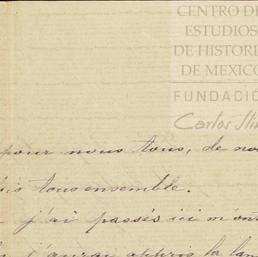 CENTRO DE
ESTUDIOS
DE HISTORIA
DE MEXICO
FUNDACIÓ
Carlos Sli
pour nous tous, de no
tous ensemble.
j'ai passés ici m'on
j'aurai appris la lan